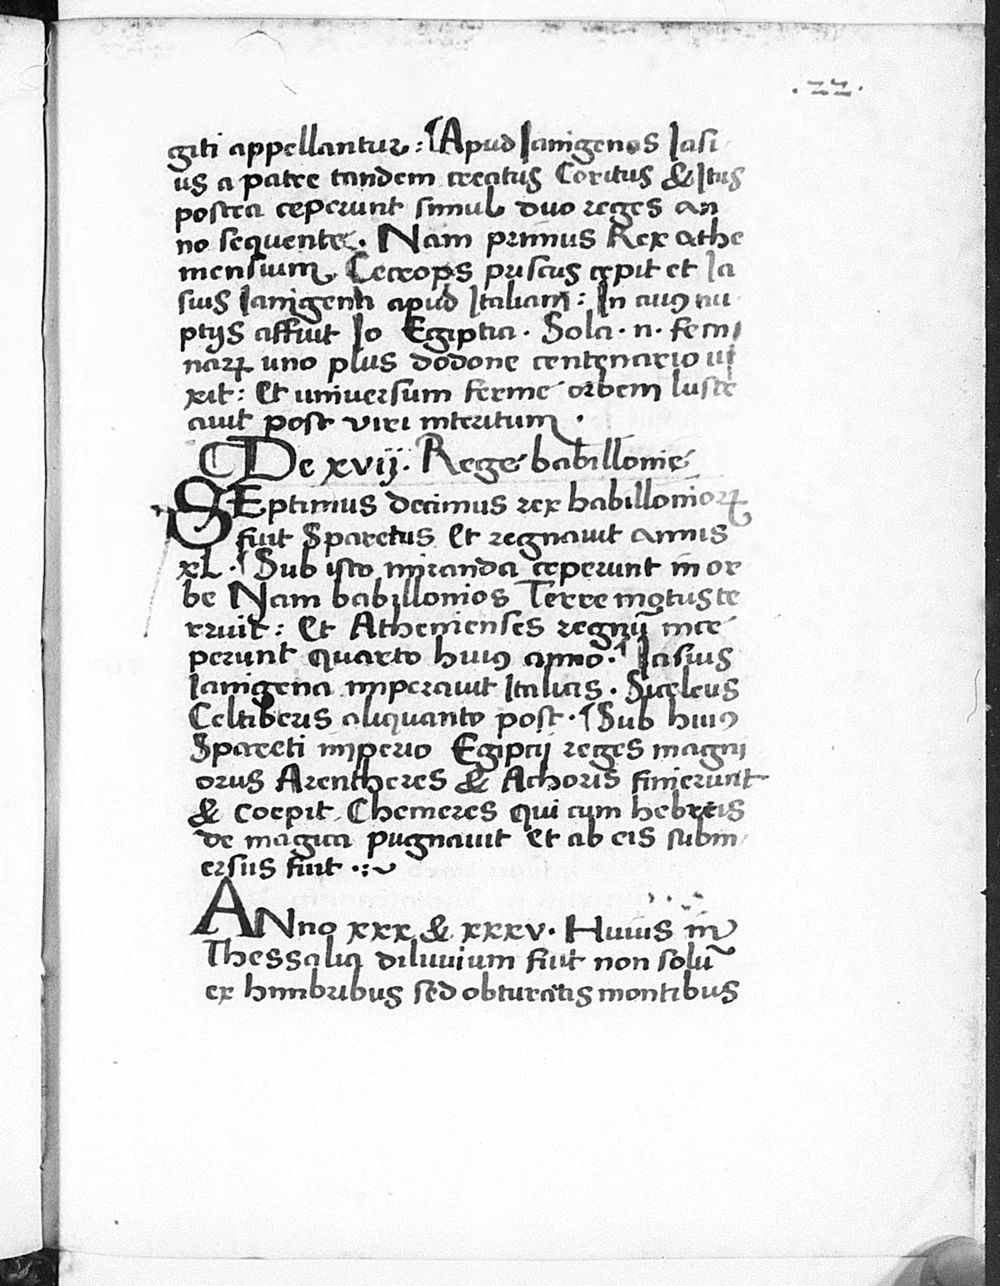 .22.
giti appellantur : ¶ Apud Ianigenas Iasi
us a patre tandem creatus Coritus & Itus
postea ceperunt simul duo reges an
no sequente. Nam primus Rex athe
mensium Cecrops priscus cepit et Ia
sius Ianigena apud Italiam : In cuiꝰ nu
ptijs affuit Io Egiptia . Sola . n . femi
naꝝ uno plus dodone centenario ui
xit : Et universum ferme orbem lustr
auit post viri interitum .
De xvij. Rege babillonie
SEptimus decimus rex babillonioꝝ
fuit Sparetus Et regnauit annis
xL . ¶ Sub isto miranda ceperunt in or
be Nam babillonios Terre motus te
rruit : Et Athenienses regnū ince
perunt quarto huiꝰ anno . ¶ Iasius
Ianigena imperauit Italiis . Siceleus
Celtiberis aliquanto post . ¶ Sub huiꝰ
Spareti imperio Egiptij reges magni
orus Arentheres & Achoris finierunt
& coepit Chemeres qui cum hebreis
de magica pugnauit et ab eis subm
ersus fuit .:~
ANno xxx & xxxv. Huius in
Thessalia diluuium fuit non solū
ex himbribus sed obturatis montibus